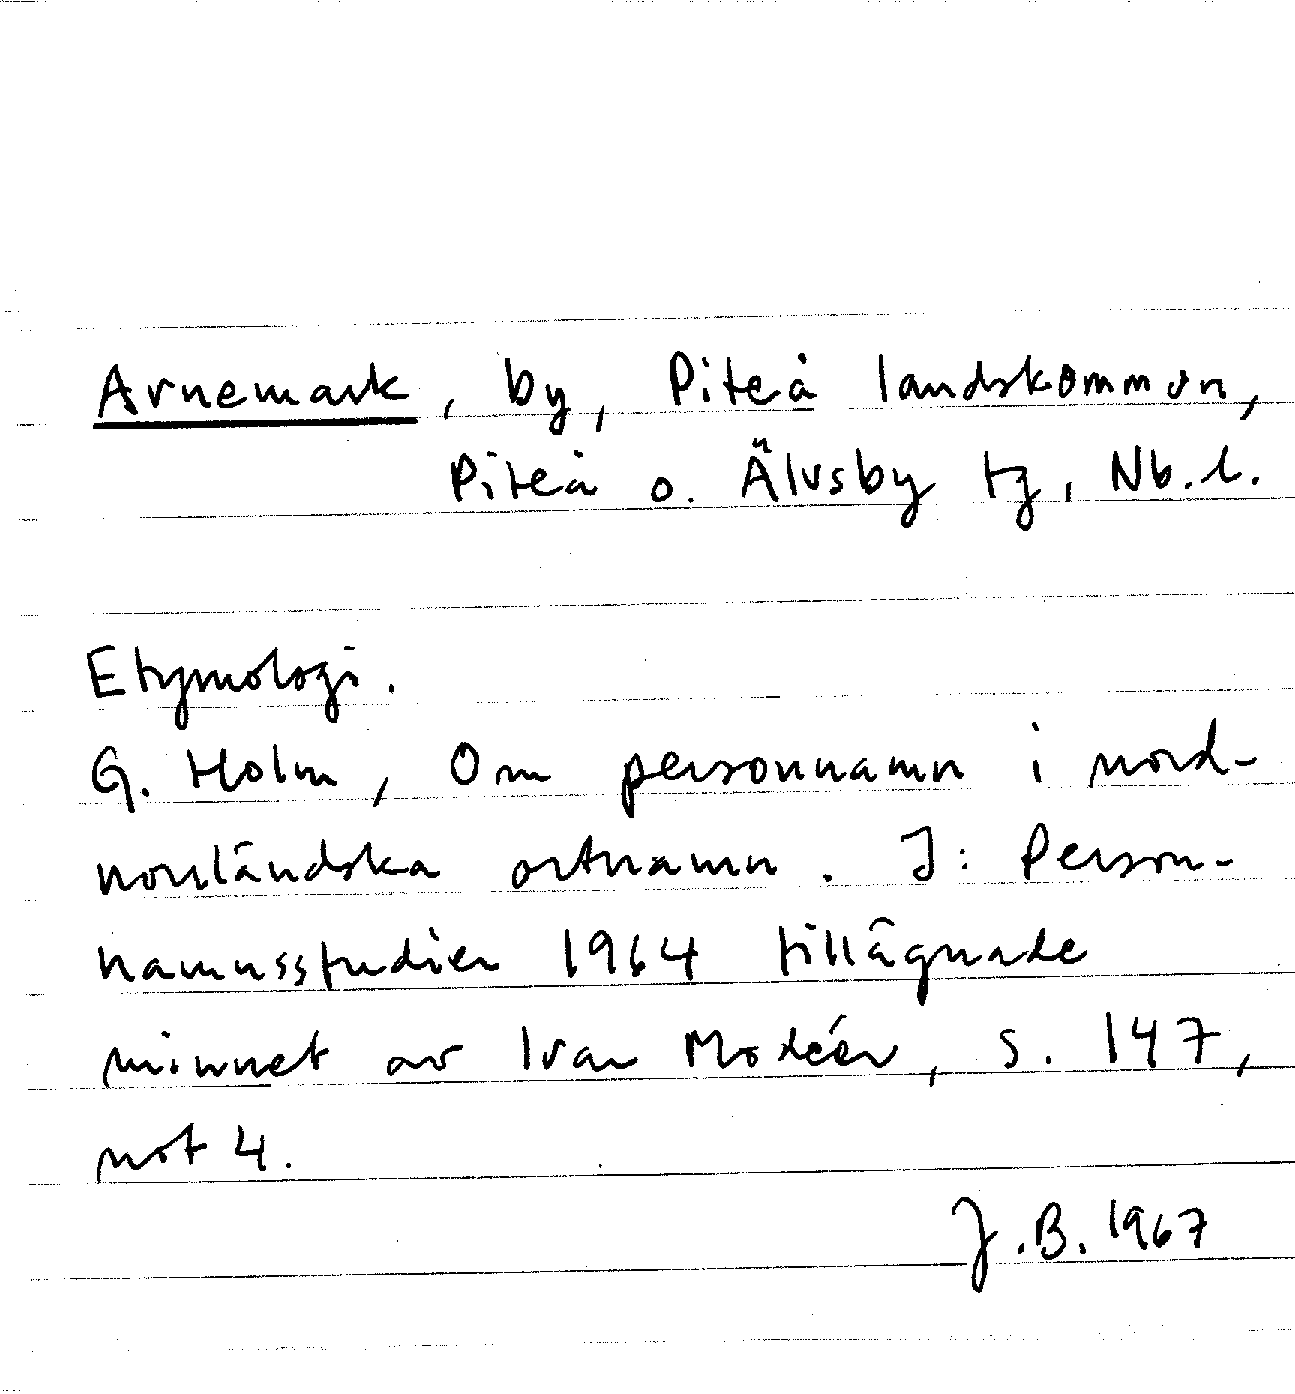 Arnemark, by, Piteå landskommun,
Piteå o. Älvsby tg, Nb.l.
Etymologi.
G. Holm, Om personnamn i nord-
norrländska ortnamn. I: Person-
namnsstudier 1964 tillägnade
minnet av Ivar Modéer, s. 147,
not 4.
J.B. 1967